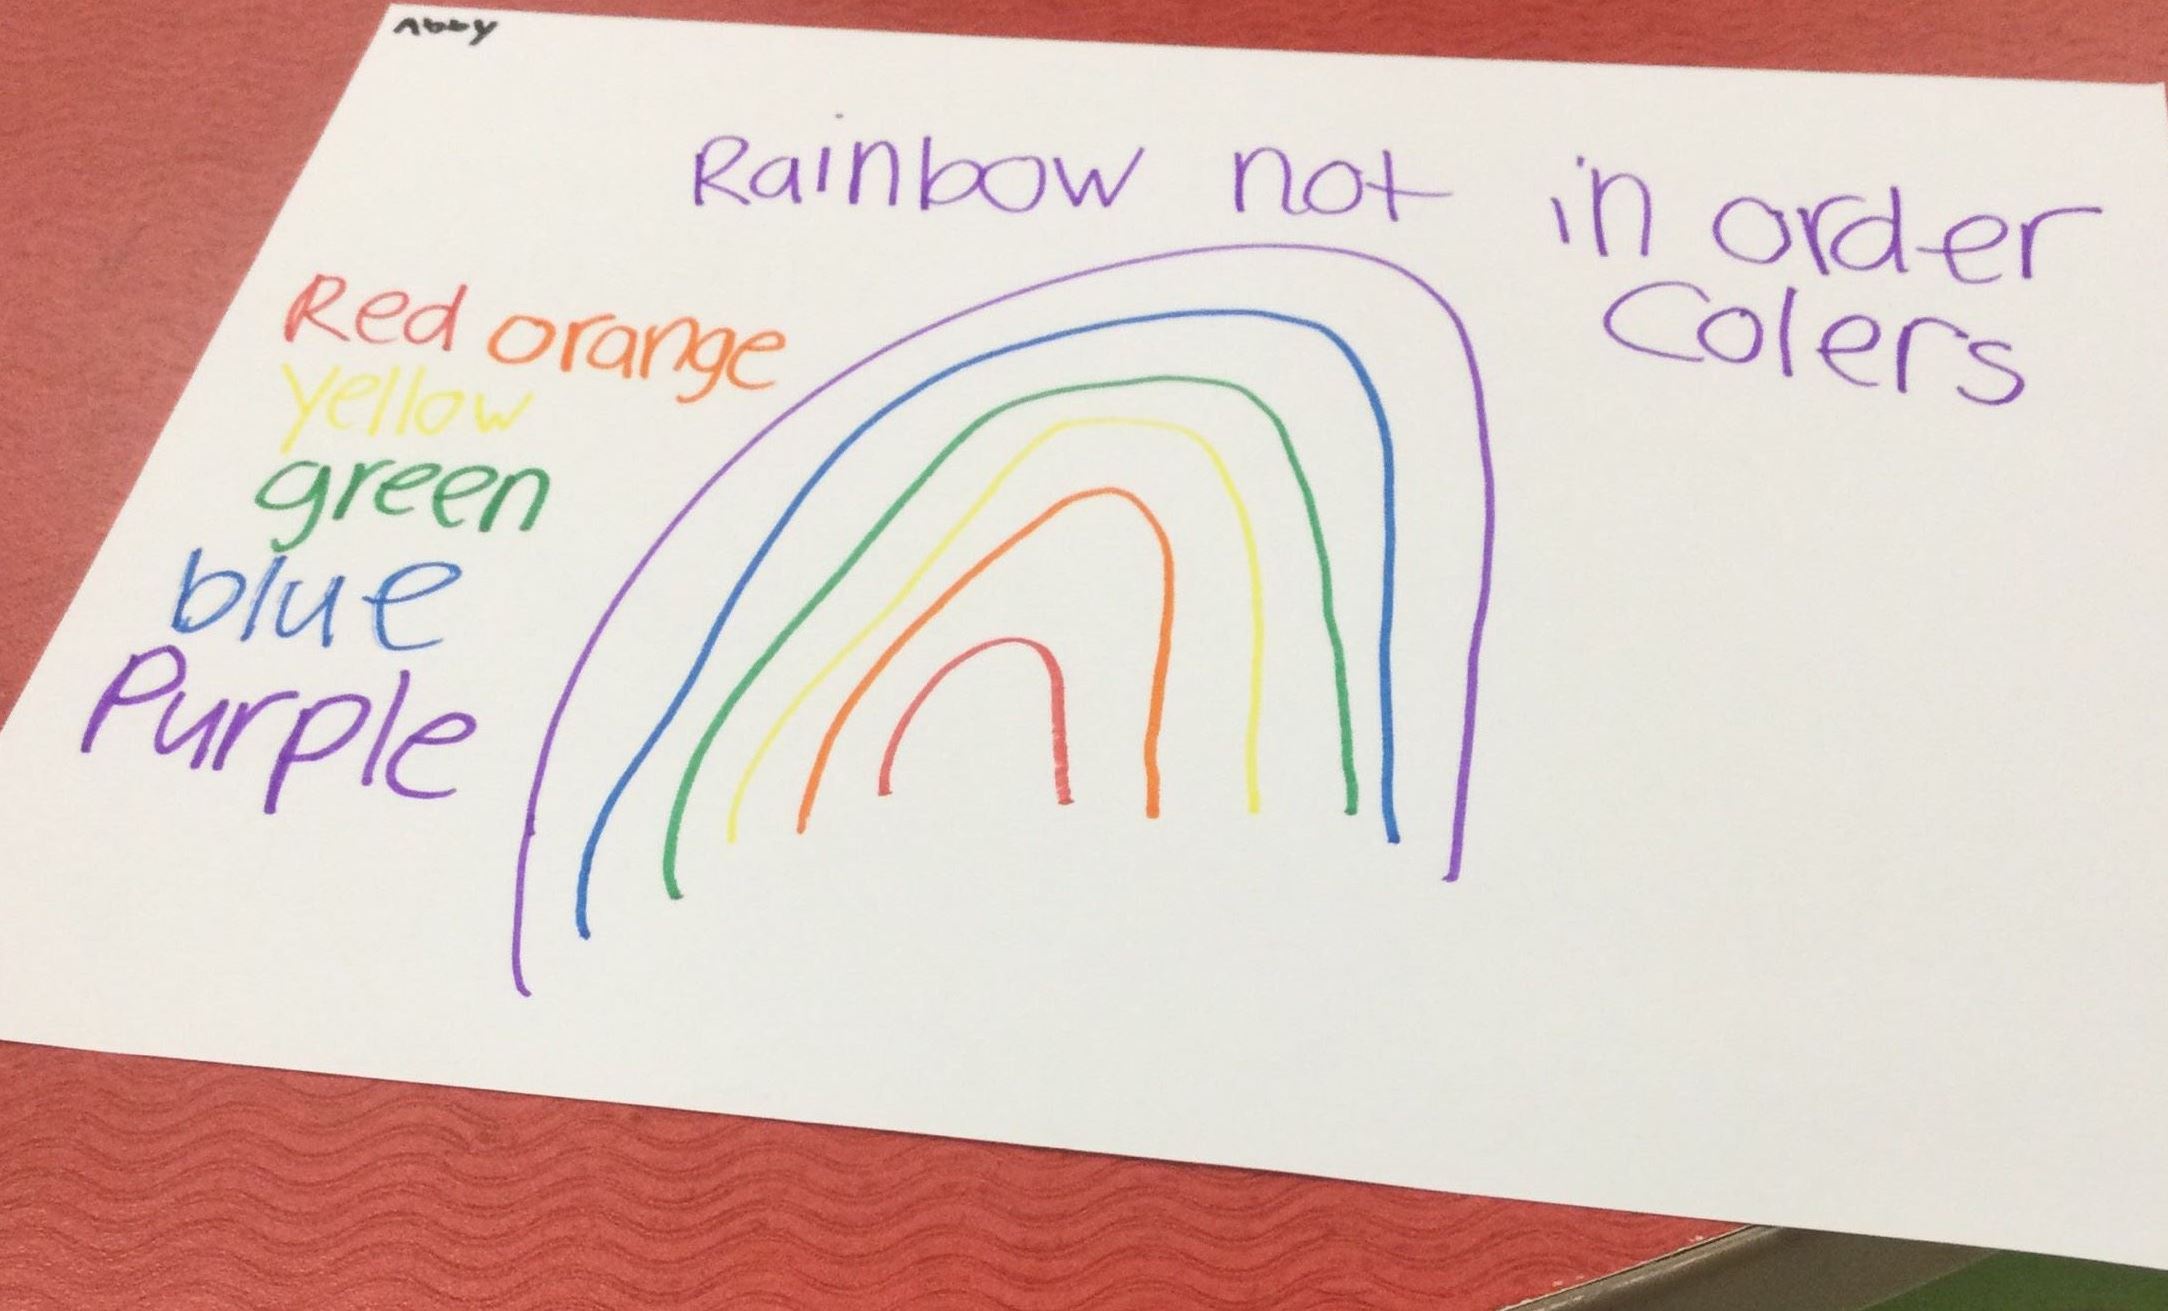 Abby
Rainbow not in order
Colers
Red orange
yellow
green
blue
Purple